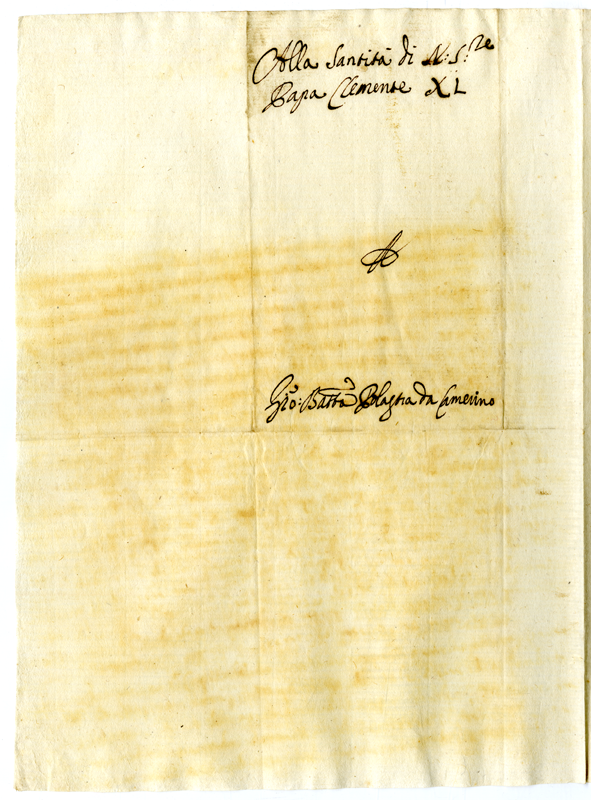 Alla Santità di N: S:re
Papa Clemente XI
Gio: Batta Polastra da Camerino